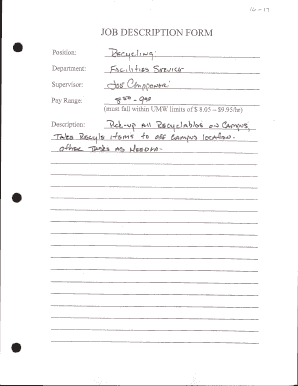 16-17
JOB DESCRIPTION FORM
Position: Recycling
Department: Facilities Service
Supervisor: Joe
Pay Range: 8.50 - 9.00
(must fall within UMW limits of $ 8.05 – $9.95/hr)
Description: Pick-up All Recyclables on Campus,
Take Recycle items to off Campus location.
other Tasks as Needed.